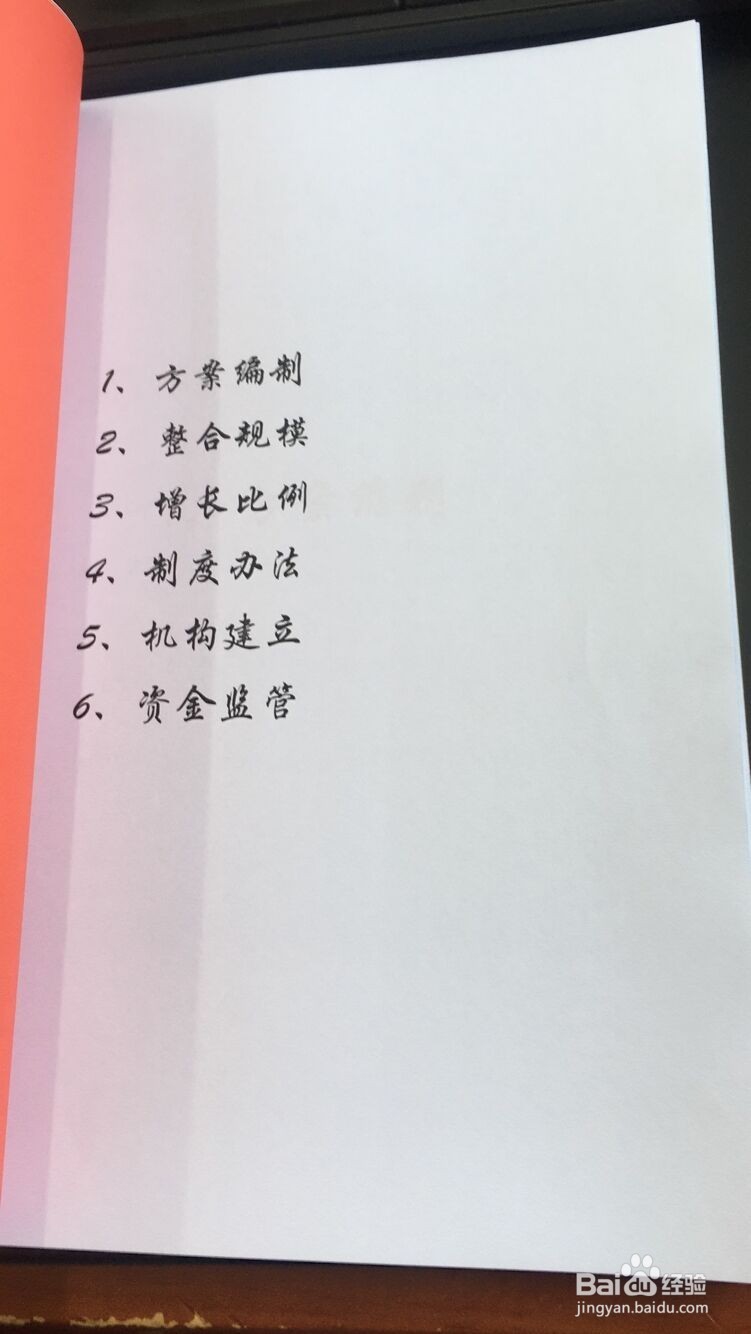 1、方案编制
2、整合规模
3、增长比例
4、制度办法
5、机构建立
6、资金监管
Baidu经验
jingyan.baidu.com